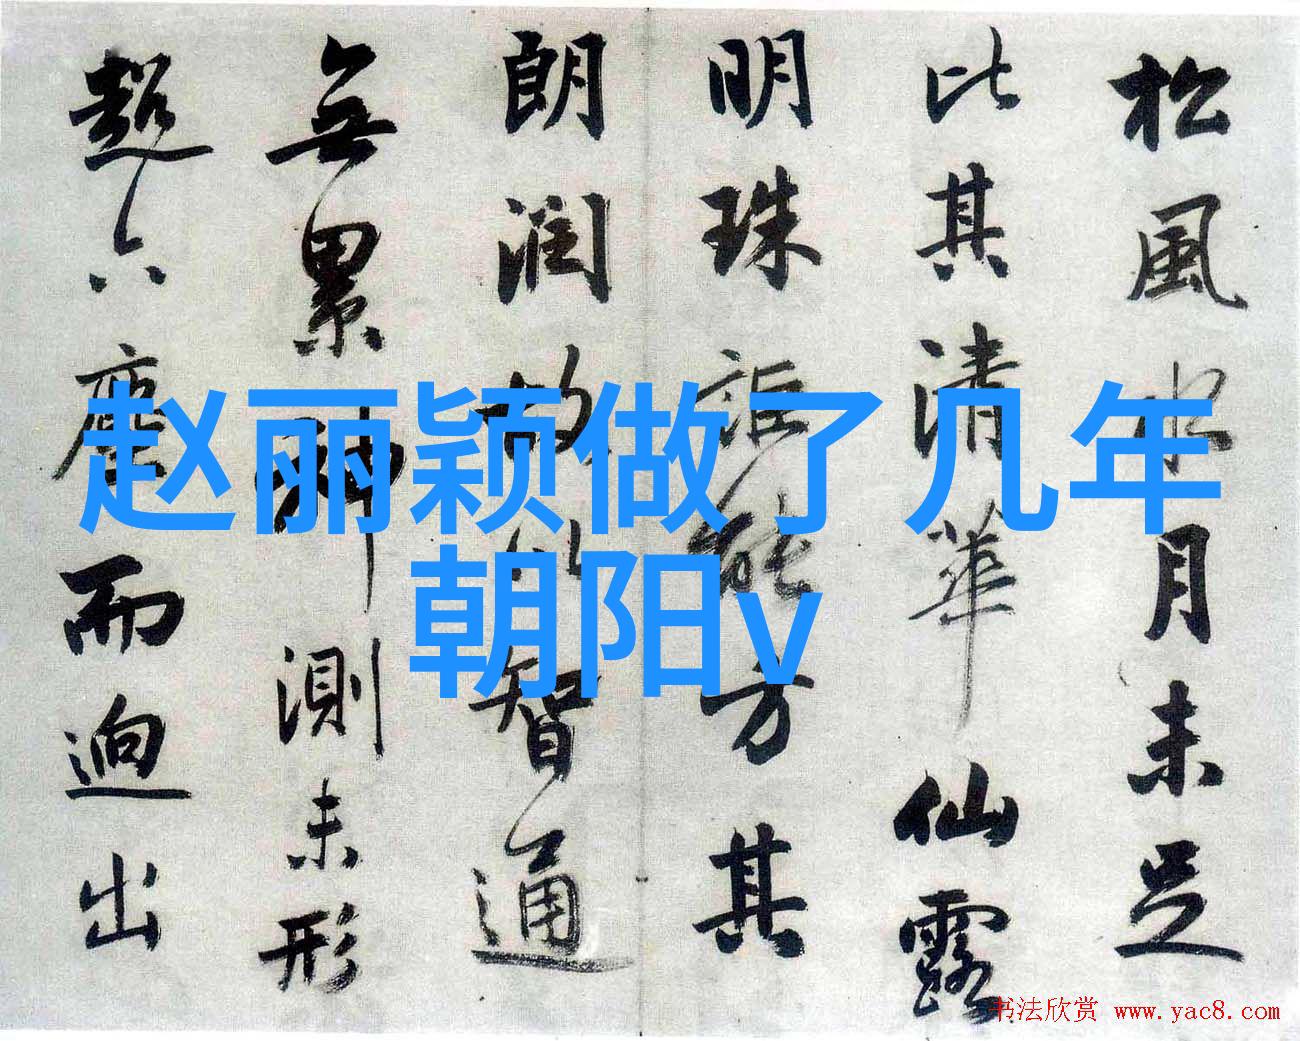 松風水月未足
比其清華仙露
明珠詎能方其
朗潤故以智通
無累神測未形
超六塵而迥出
赵丽颖做了几年
朝阳v
书法欣赏 www.yac8.com